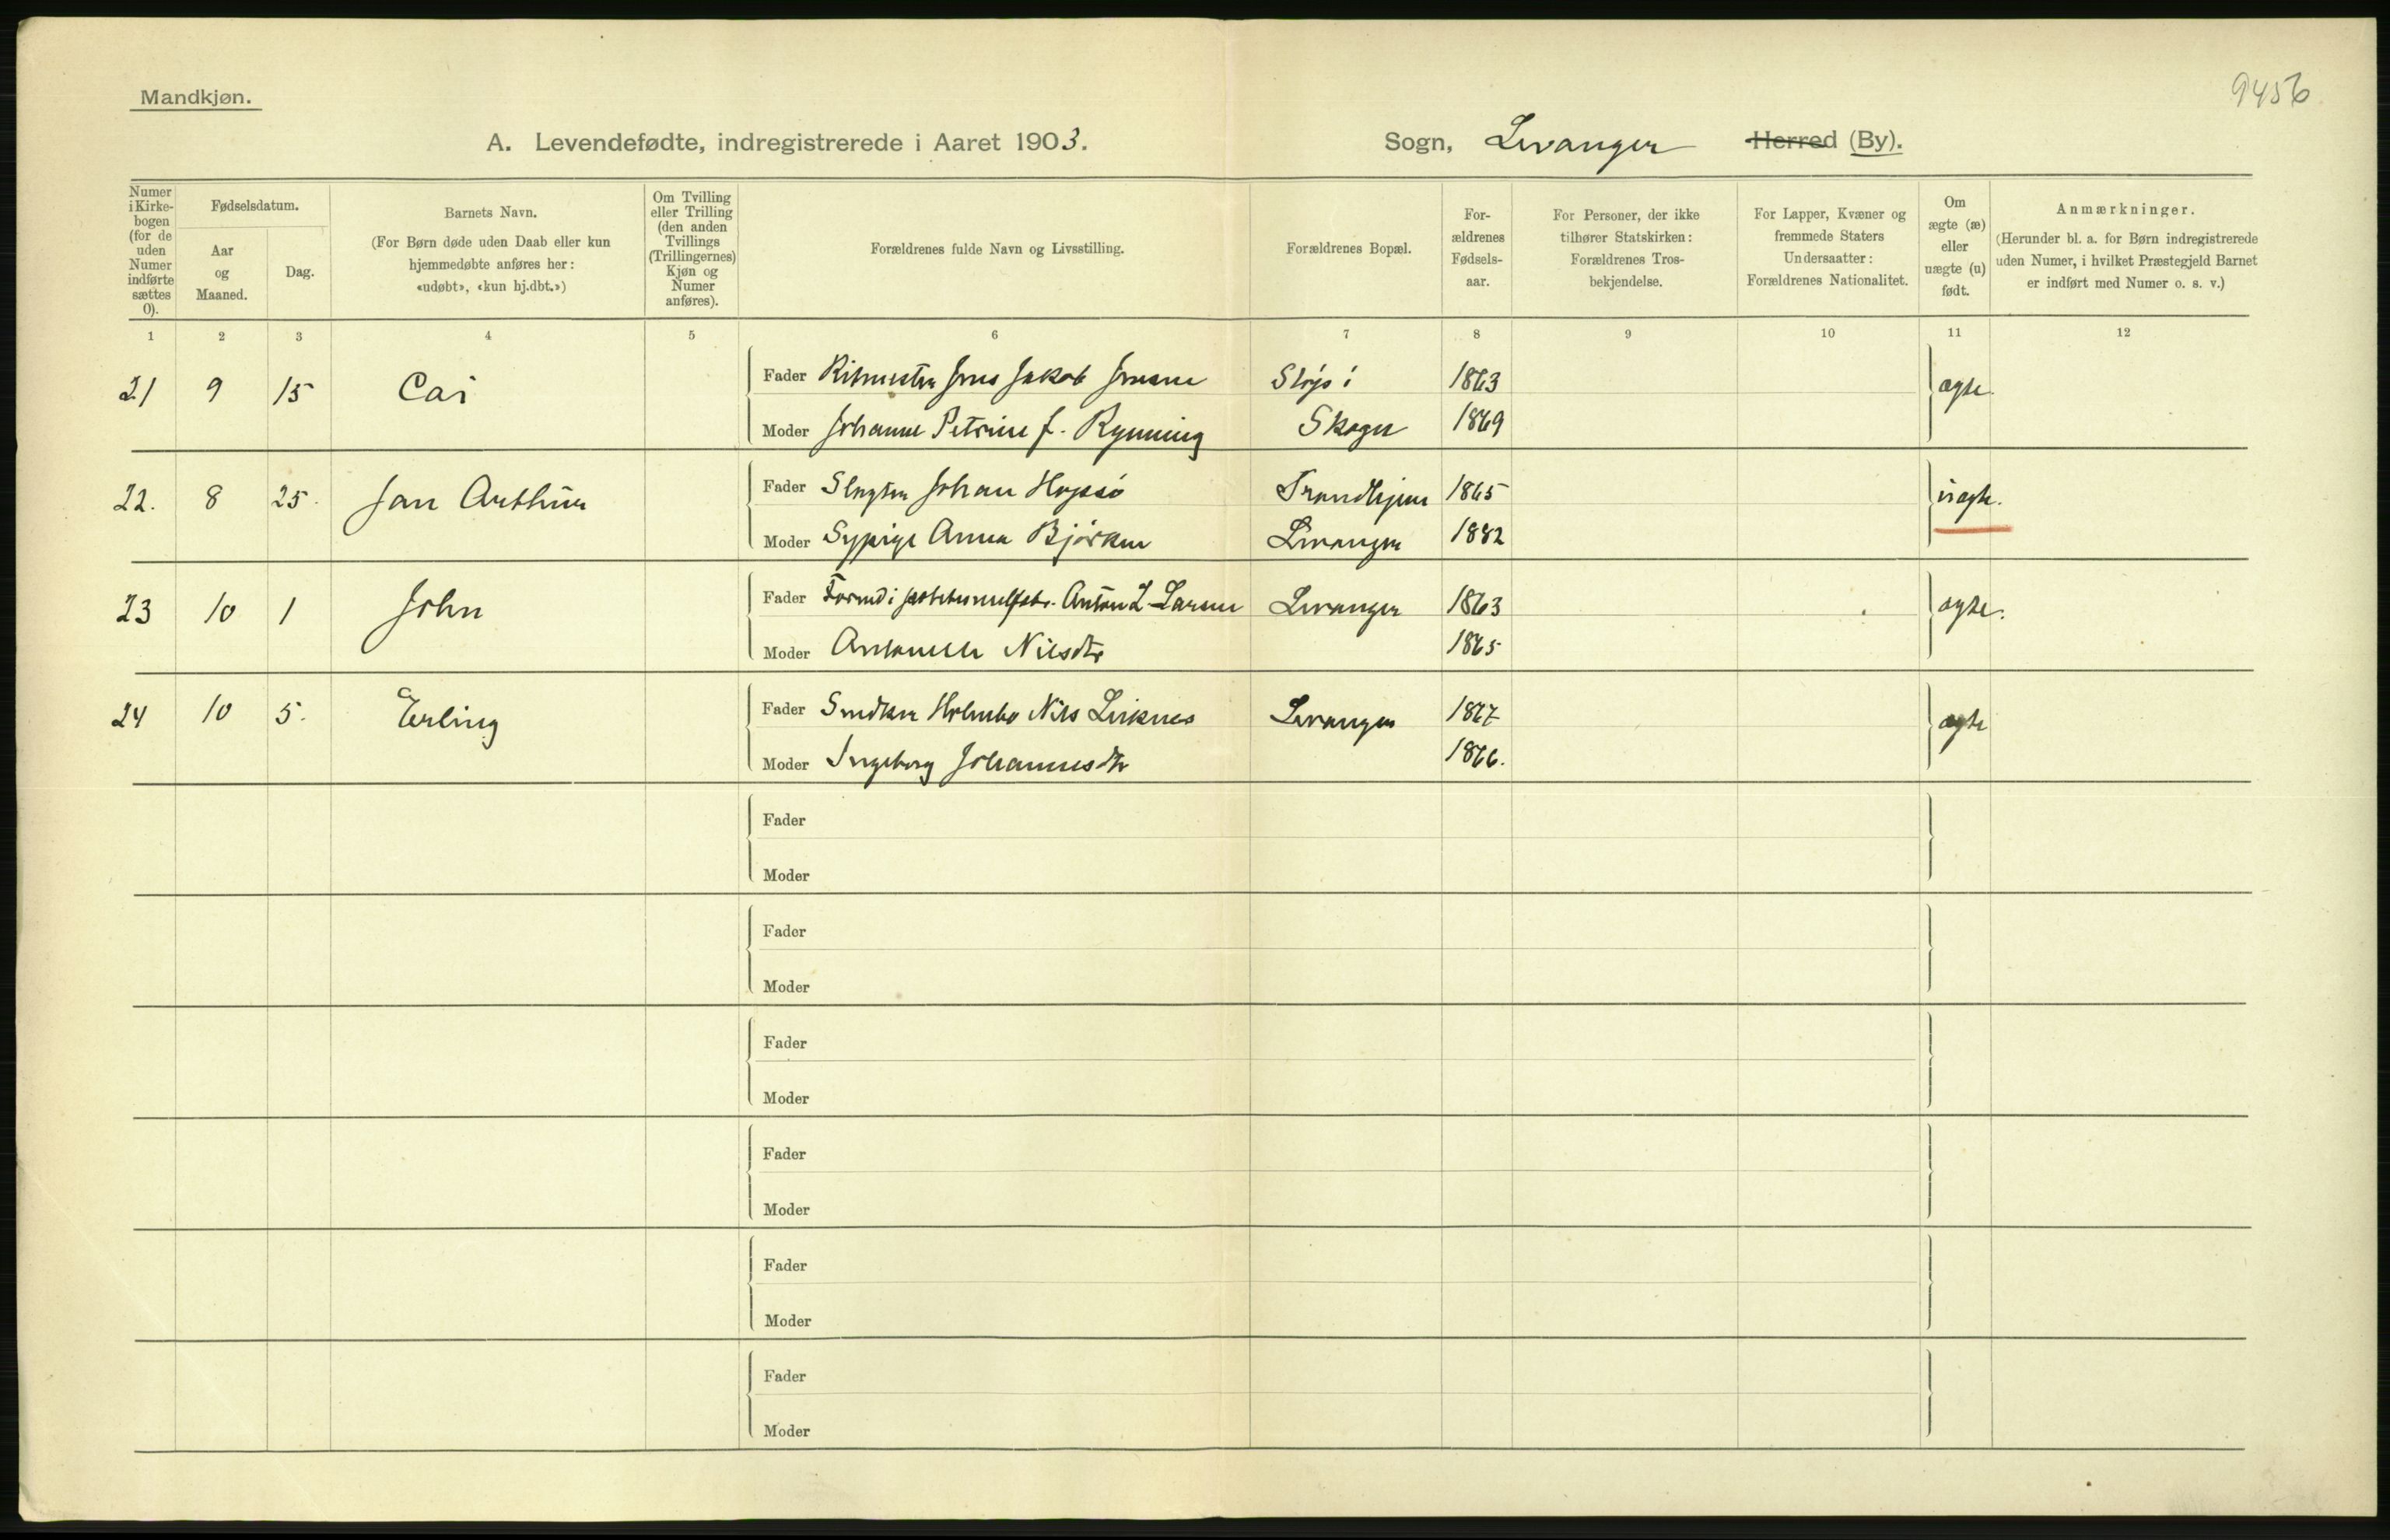 Mandkjøn.
9456
A. Levendefødte, indregistrerede i Aaret 1903.
Sogn, Levanger Herred (By).
Numer i Kirke-bogen (for de uden Numer indførte sættes 0).
Fødselsdatum.
Aar og Maaned.
Dag.
Barnets Navn.
(For Børn døde uden Daab eller kun hjemmedøbte anføres her: «udøbt», «kun hj.dbt.»)
Om Tvilling eller Trilling (den anden Tvillings (Trillingernes) Kjøn og Numer anføres).
Forældrenes fulde Navn og Livsstilling.
Forældrenes Bopæl.
For-ældrenes Fødsels-aar.
For Personer, der ikke tilhører Statskirken: Forældrenes Tros-bekjendelse.
For Lapper, Kvæner og fremmede Staters Undersaatter: Forældrenes Nationalitet.
Om ægte (æ) eller uægte (u) født.
Anmærkninger.
(Herunder bl. a. for Børn indregistrerede uden Numer, i hvilket Præstegjeld Barnet er indført med Numer o. s. v.)
1 2 3 4 5 6 7 8 9 10 11 12
21 9 15 Cai Fader Ritmester Jens Jakob Jensen 1863 ægte.
Moder Johanne Petrine f. Rynning Skogn 1869
22. 8 25. Jan Arthur Fader Slagter Johan Hopsö Trondhjem 1865 uægte.
Moder Sypige Anna Björken Levanger 1882
23 10 1 John Fader Anton L. Larsen Levanger 1863 ægte.
Moder Antonette Nilsdtr 1865
24 10 5. Erling Fader Snedker Nils Levanger 1867 ægte
Moder Ingeborg Johannesdtr 1866.
Fader
Moder
Fader
Moder
Fader
Moder
Fader
Moder
Fader
Moder
Fader
Moder